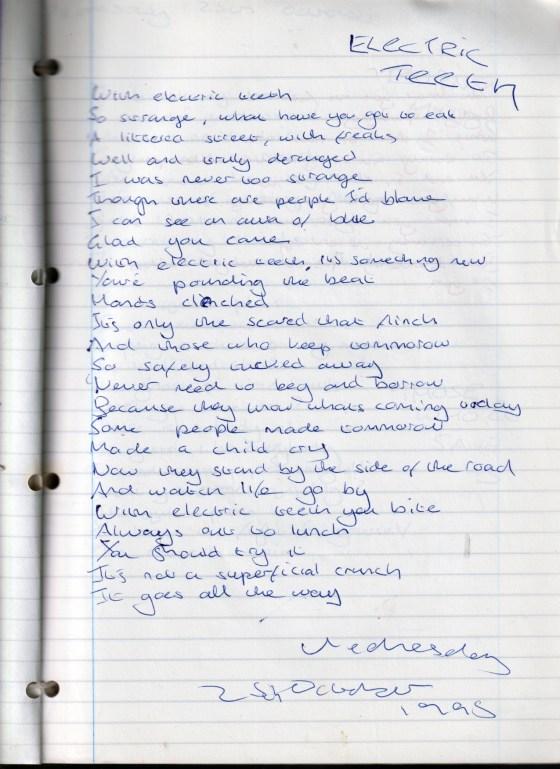 ELECTRIC
TEETH
With electric teeth
So strange, what have you got to eat
A littered street, with freaks
Well and truly deranged
I was never too strange
Though there are people I'd blame
I can see an aura of blue
Glad you came
With electric teeth, it's something new
You're pounding the beat
Hands clenched
It's only the scared that flinch
And those who keep tommorow
So safely tucked away
Never need to beg and borrow
Because they know whats coming today
Some people made tommorow
Made a child cry
Now they stand by the side of the road
And watch life go by
With electric teeth you bite
Always out to lunch
You should try it
It's not a superficial crunch
It goes all the way
Wednesday
25th October
1995